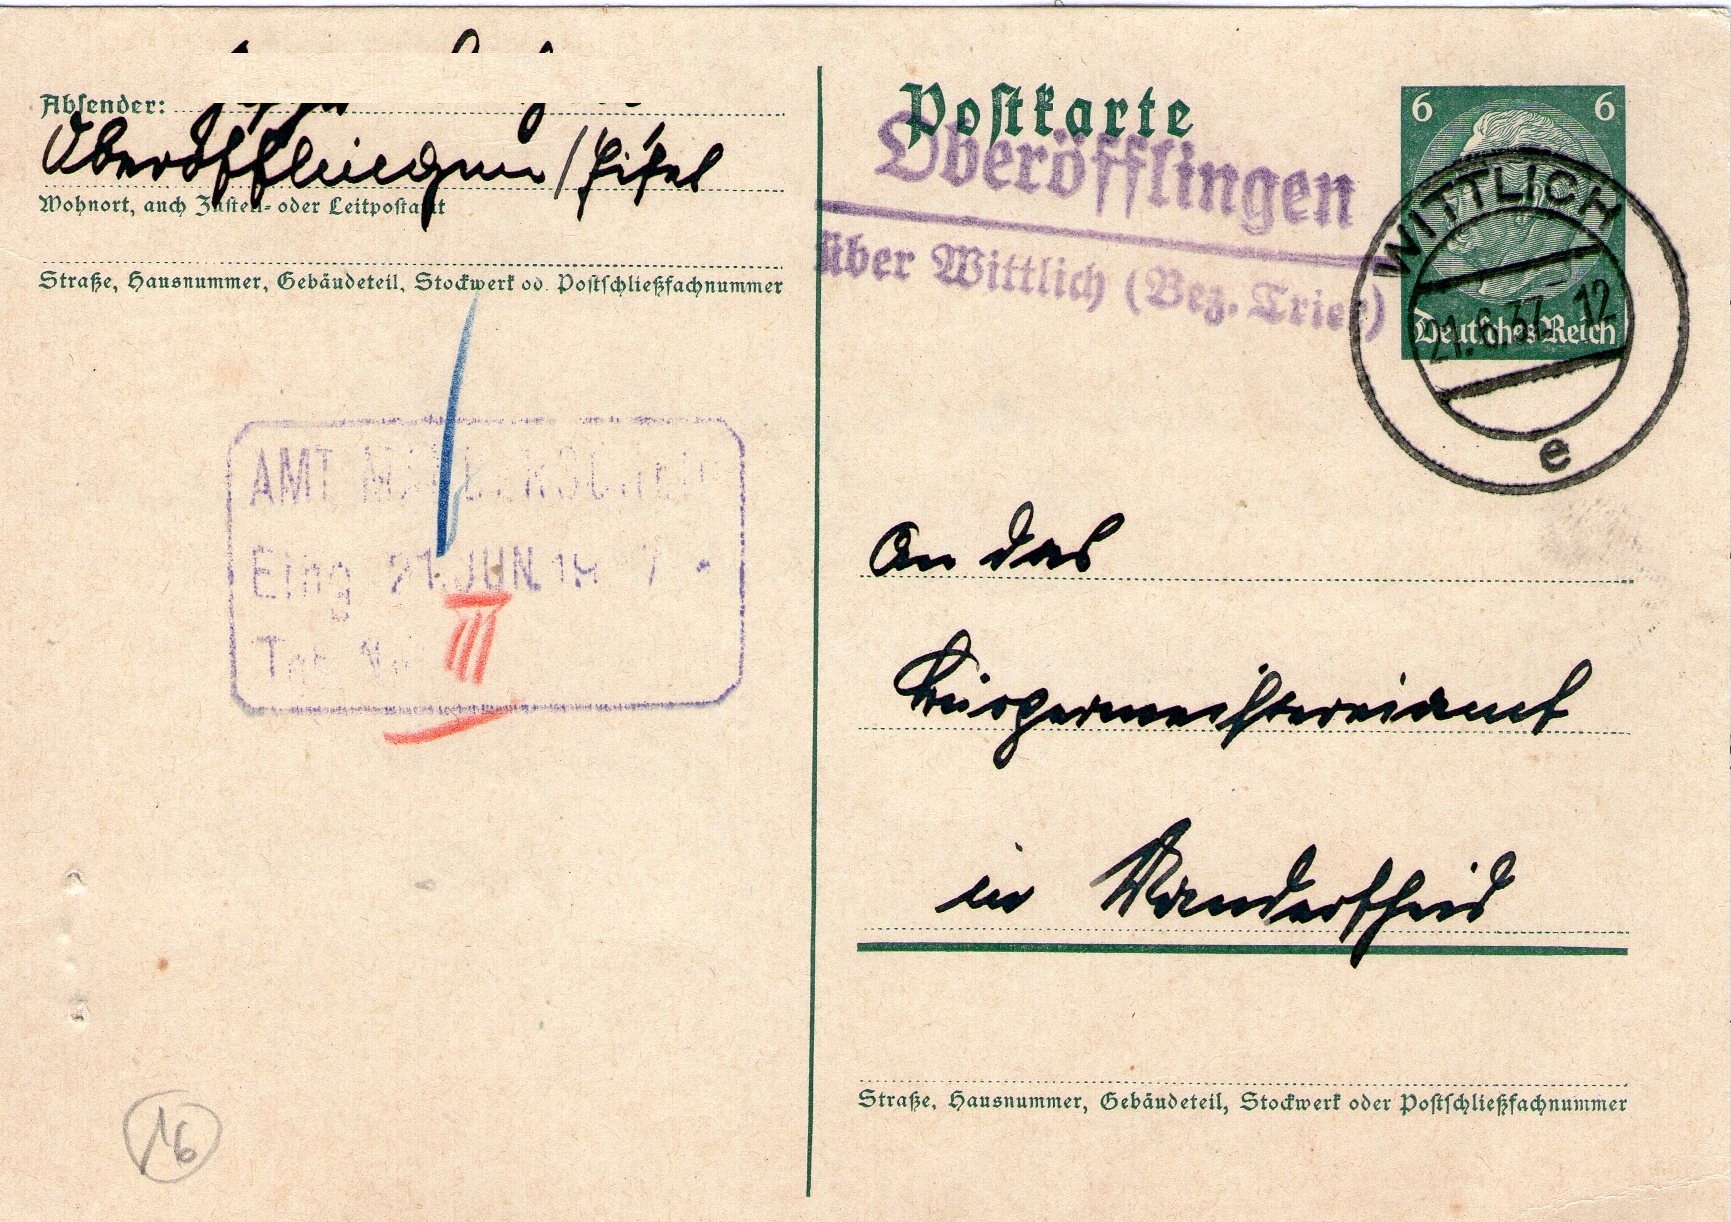 Absender:
Oberöfflingen / Eifel
Wohnort, auch Zustell- oder Leitpostamt
Straße, Hausnummer, Gebäudeteil, Stockwerk od. Postschließfachnummer
AMT
Eing 21. JUN. 19 7
Tgb. No.
III
16
Postkarte
6 6
Deutsches Reich
WITTLICH
21.6.37. 12
e
Oberöfflingen
über Wittlich (Bez. Trier)
An das
Bürgermeistereiamt
in Manderscheid
Straße, Hausnummer, Gebäudeteil, Stockwerk oder Postschließfachnummer